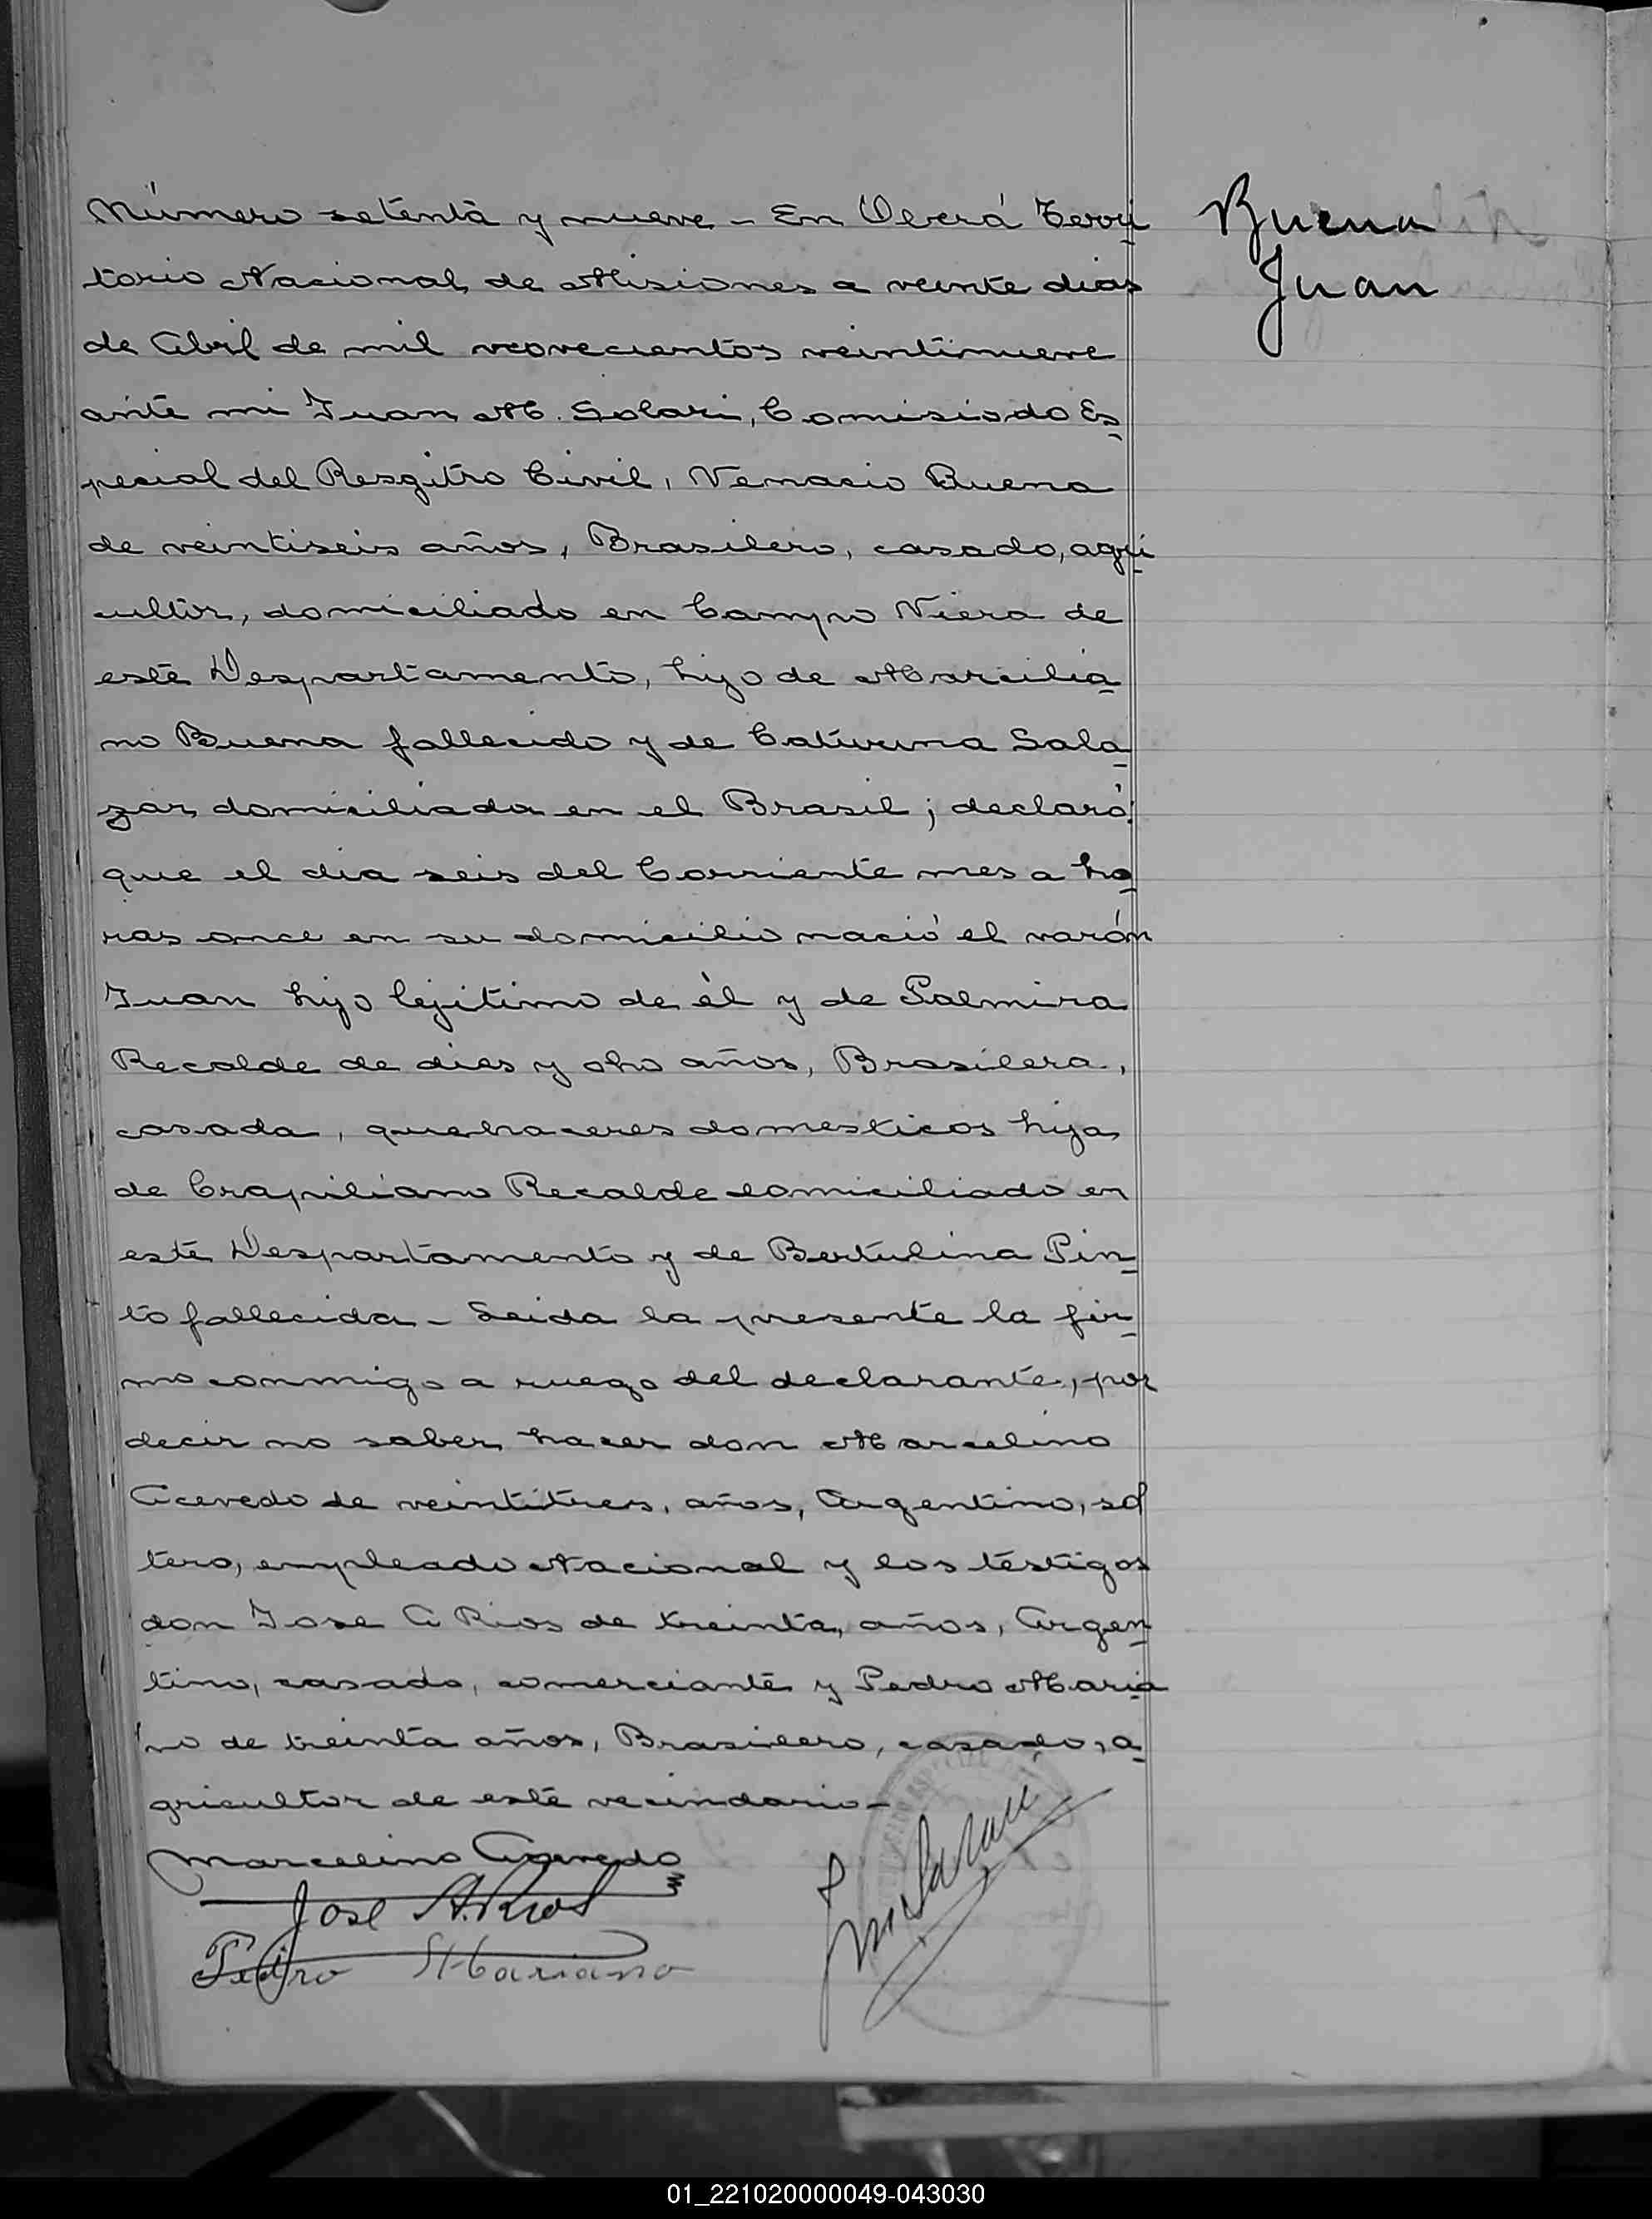 Buena
Juan
Número setenta y nueve - En Oberá Terri
torio Nacional de Misiones a veinte dias
de Abril de mil novecientos veintinueve
ante mi Juan M. Solari, Comisiodo Es
pecial del Resgitro Civil, Venacio Buena
de veintiseis años, Brasilero, casado, agri
cultor, domiciliado en Campo Viera de
este Despartamento, hijo de Marcilia
no Buena fallecido y de Caturina Sala
zar domiciliada en el Brasil; declaró:
que el dia seis del Corriente mes a ho
ras once en su domicilio nació el varón
Juan hijo lejitimo de él y de Palmira
Recalde de dies y oho años, Brasilera,
casada, quehaceres domesticos hija
de Crapiliano Recalde domiciliado en
este Despartamento y de Bertulina Pin
to fallecida - Leida la presente la fir
mo conmigo a ruego del declarante, por
decir no saber hacer don Marcelino
Acevedo de veintitres, años, Argentino, sol
tero, empleado Nacional y los testigos
don Jose A Rios de treinta, años, Argen
tino, casado, comerciante y Pedro Maria
no de treinta años, Brasilero, casado, a
gricultor de este vecindario -
Marcelino Acevedo
Jose A. Rios
Pedro Mariano
01_221020000049-043030